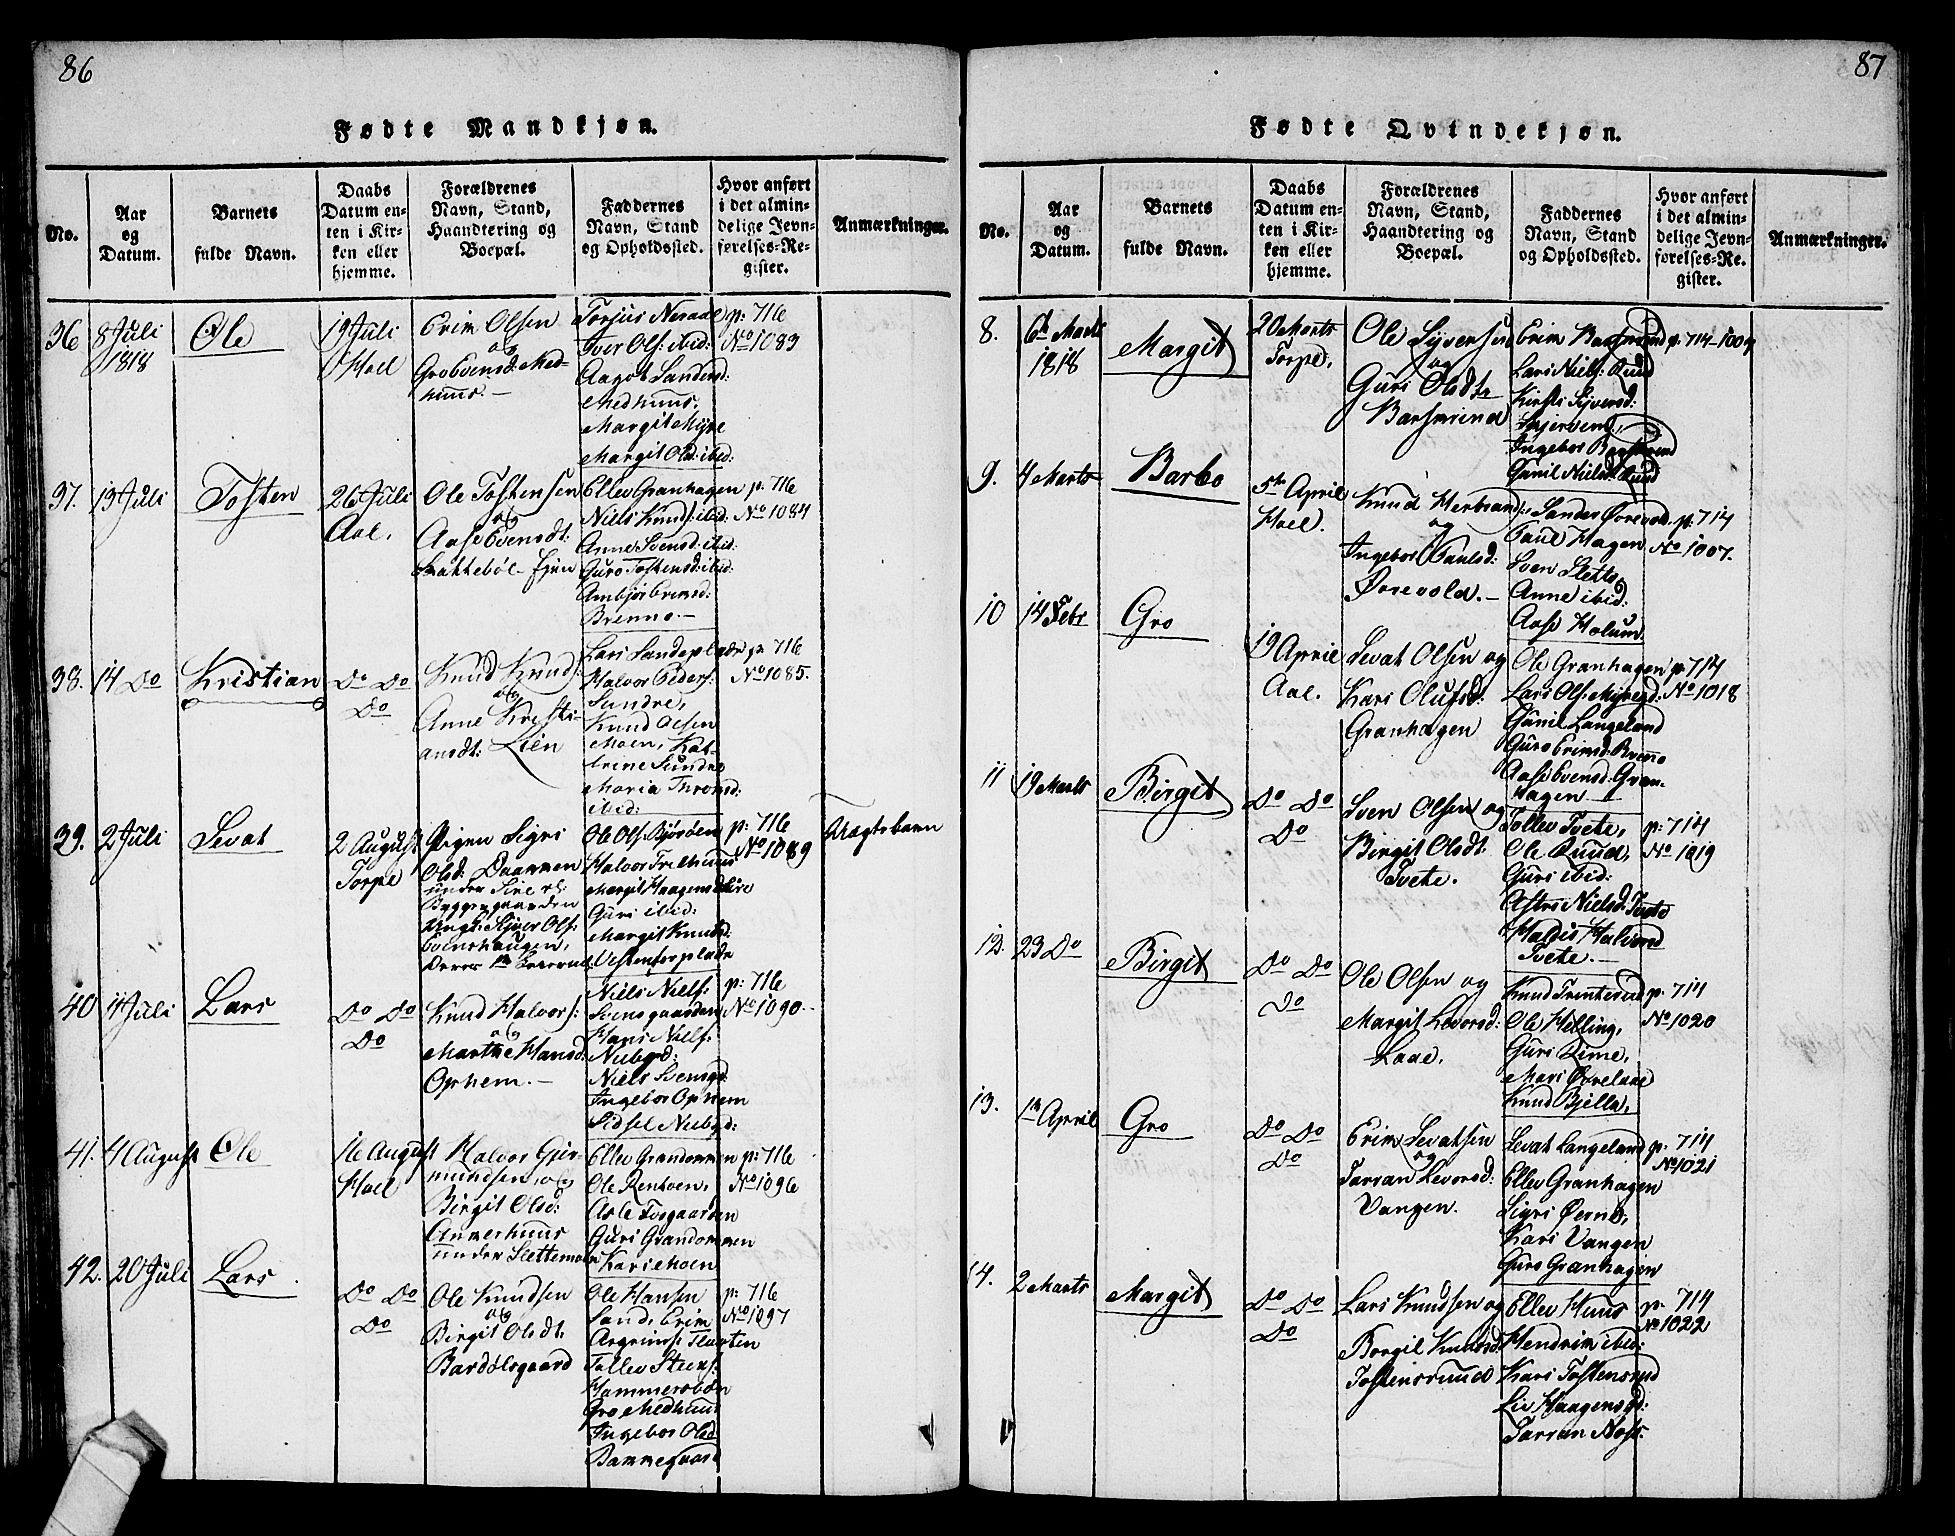 86
Fødte Mandkjøn.
No.
Aar
og
Datum.
Barnets
fulde Navn.
Daabs
Datum en-
ten i Kir-
ken eller
hjemme.
Forældrenes
Navn, Stand,
Haandtering og
Boepæl.
Faddernes
Navn, Stand
og Opholdssted.
Hvor anført
i det almin-
delige Jevn-
førelses-Re-
gister.
Anmærkninger.
36
8 Juli
1818
Ole
19 Juli
Hoel
Erik Olsen
og
Gro Evensd: Med-
huus.-
Torjus Neraal
Iver Ols: ibid:
Aagot Sandersd:
Medhuus.
Margit Myre
Margit Olsd: ibid:
p: 716
No 1083
37.
13 Juli
Tosten
26 Juli
Aal.
Ole Tostensen
og
Aase Evensdt:
Skattebøl-Ejen
Ellev Granhagen
Niels Knuds: ibid:
Anne Svensd: ibid:
Guro Tostensd: ibid:
Ambjør Eriksd:
Brenno.-
p: 716
No 1084
38.
14 Do
Kristian
Do Do
Do
Knud Knuds:
og
Anne Kristi-
ansdt: Lien
Lars Sandeplads
Halvor Peders:
Sundre,
Knud Olsen
Moen, Kat-
trine Sundre
Maria Thromsd:
ibid:
p: 716
No 1085.
39.
2 Juli
Sevat
2 August
Torpe
Pigen Sigri
Olsd: Daammen
under Sire og
Byggegaarden
Ungk: Syver Ols:
Evenshaugen,
Ole Ols: Bjørøen
Halvor Trelhuus
Margit Haagensd: Sire
Guri ibid:
Margit Knudsd:
Vestenforplads
p: 716
No 1089
Uægtebarn
40
4 Juli
Lars
Do Do
Do
Knud Halvors:
og
Marthe Hansd:
Ophem.-
Niels Niels:
Svensgaarden
Hans Niels:
Niebgd:
Niels Svensgd:
Ingebor Ophem
Sidsel Niebgd:
p: 716
No 1090.
41.
4 August
Ole
16 August
Hoel
Halvor Gjer-
mundsen, og
Birgit Olsd:
Aakerhuus
under Slettemoen
Ellev Grandommen
Ole Renhoen,
Asle Tosgaarden
Guri Grandommen
Kari Moen
p: 716
No 1096
42.
20 Juli
Lars
Do Do
Do
Ole Knudsen
og
Birgit Olsdt:
Bardølsgaard
Ole Hansen
Sand, Erik
Asgrims: Flaaten
Tollev Steens:
Hammersbøen
Gro Medhuus
Ingebor Olsd
Bammegaard
p: 716
No 1097
87
Fødte Qvindekjøn.
No.
Aar
og
Datum.
Barnets
fulde Navn.
Daabs
Datum en-
ten i Kir-
ken eller
hjemme.
Forældrenes
Navn, Stand,
Haandtering og
Boepæl.
Faddernes
Navn, Stand
og Opholdssted.
Hvor anført
i det almin-
delige Jevn-
førelses-Re-
gister.
Anmærkninger.
8.
6te Marts
1818
Margit
20 Marts
Torpe,
Ole Syversen
og
Guri Olsdtr
Barsmrind
Erik Barsmrind
Lars Niels: Ruud
Kirsti Syversd:
Skjervend,
Ingebor Barsmrind
Gunil Nielsd: Ruud
p: 714-1009
9.
4 Marts
Barbo
5te April
Hoel.
Knud Herbrands:
og
Ingebor Paulsd:
Ørevold.-
Sander Ørevold
Paul Hagen
Sven Sletto
Anne ibid:
Aase Holum
p: 714
No 1007.
10
14 Febr
Gro
19 April
Aal.
Sevat Olsen og
Kari Olufsd:
Granhagen
Ole Granhagen
Lars Ols: Myregd:
Gunil Langeland
Guro Eriksd: Brenno
Aase Evensd: Gran-
hagen
p: 714
No 1018
11
19 Marts
Birgit
Do Do
Do
Sven Olsen og
Birgit Olsdt:
Tvete.
Tollev Tvete,
Ole Ruud,
Guri ibid:
Astri Nielsd: Tvete
Haldis Halvorsd
Tvete.-
p: 714
No 1019
12.
23 Do
Birgit
Do Do
Do
Ole Olsen og
Margit Levorsd:
Laae.
Knud Trinterud
Ole Helling,
Guri Rime,
Mari Øvrelaae
Knud Bjella,
p. 714
No 1020
13.
1ste April
Gro
Do Do
Do
Erik Sevatsen
og
Tarran Levorsd:
Vangen.
Sevat Langeland
Ellev Granhagen
Sigri Øerne,
Kari Vangen
Guro Granhagen
p. 714
No 1021
14.
2 Marts
Margit
Do Do
Do
Lars Knudsen og
Borgil Knudsd
Tostensruud
Ellev Huus
Hendrik ibid:
Kari Tostensrud
Liv Haagensgd:
Tarran Noss.
p. 714
No 1022